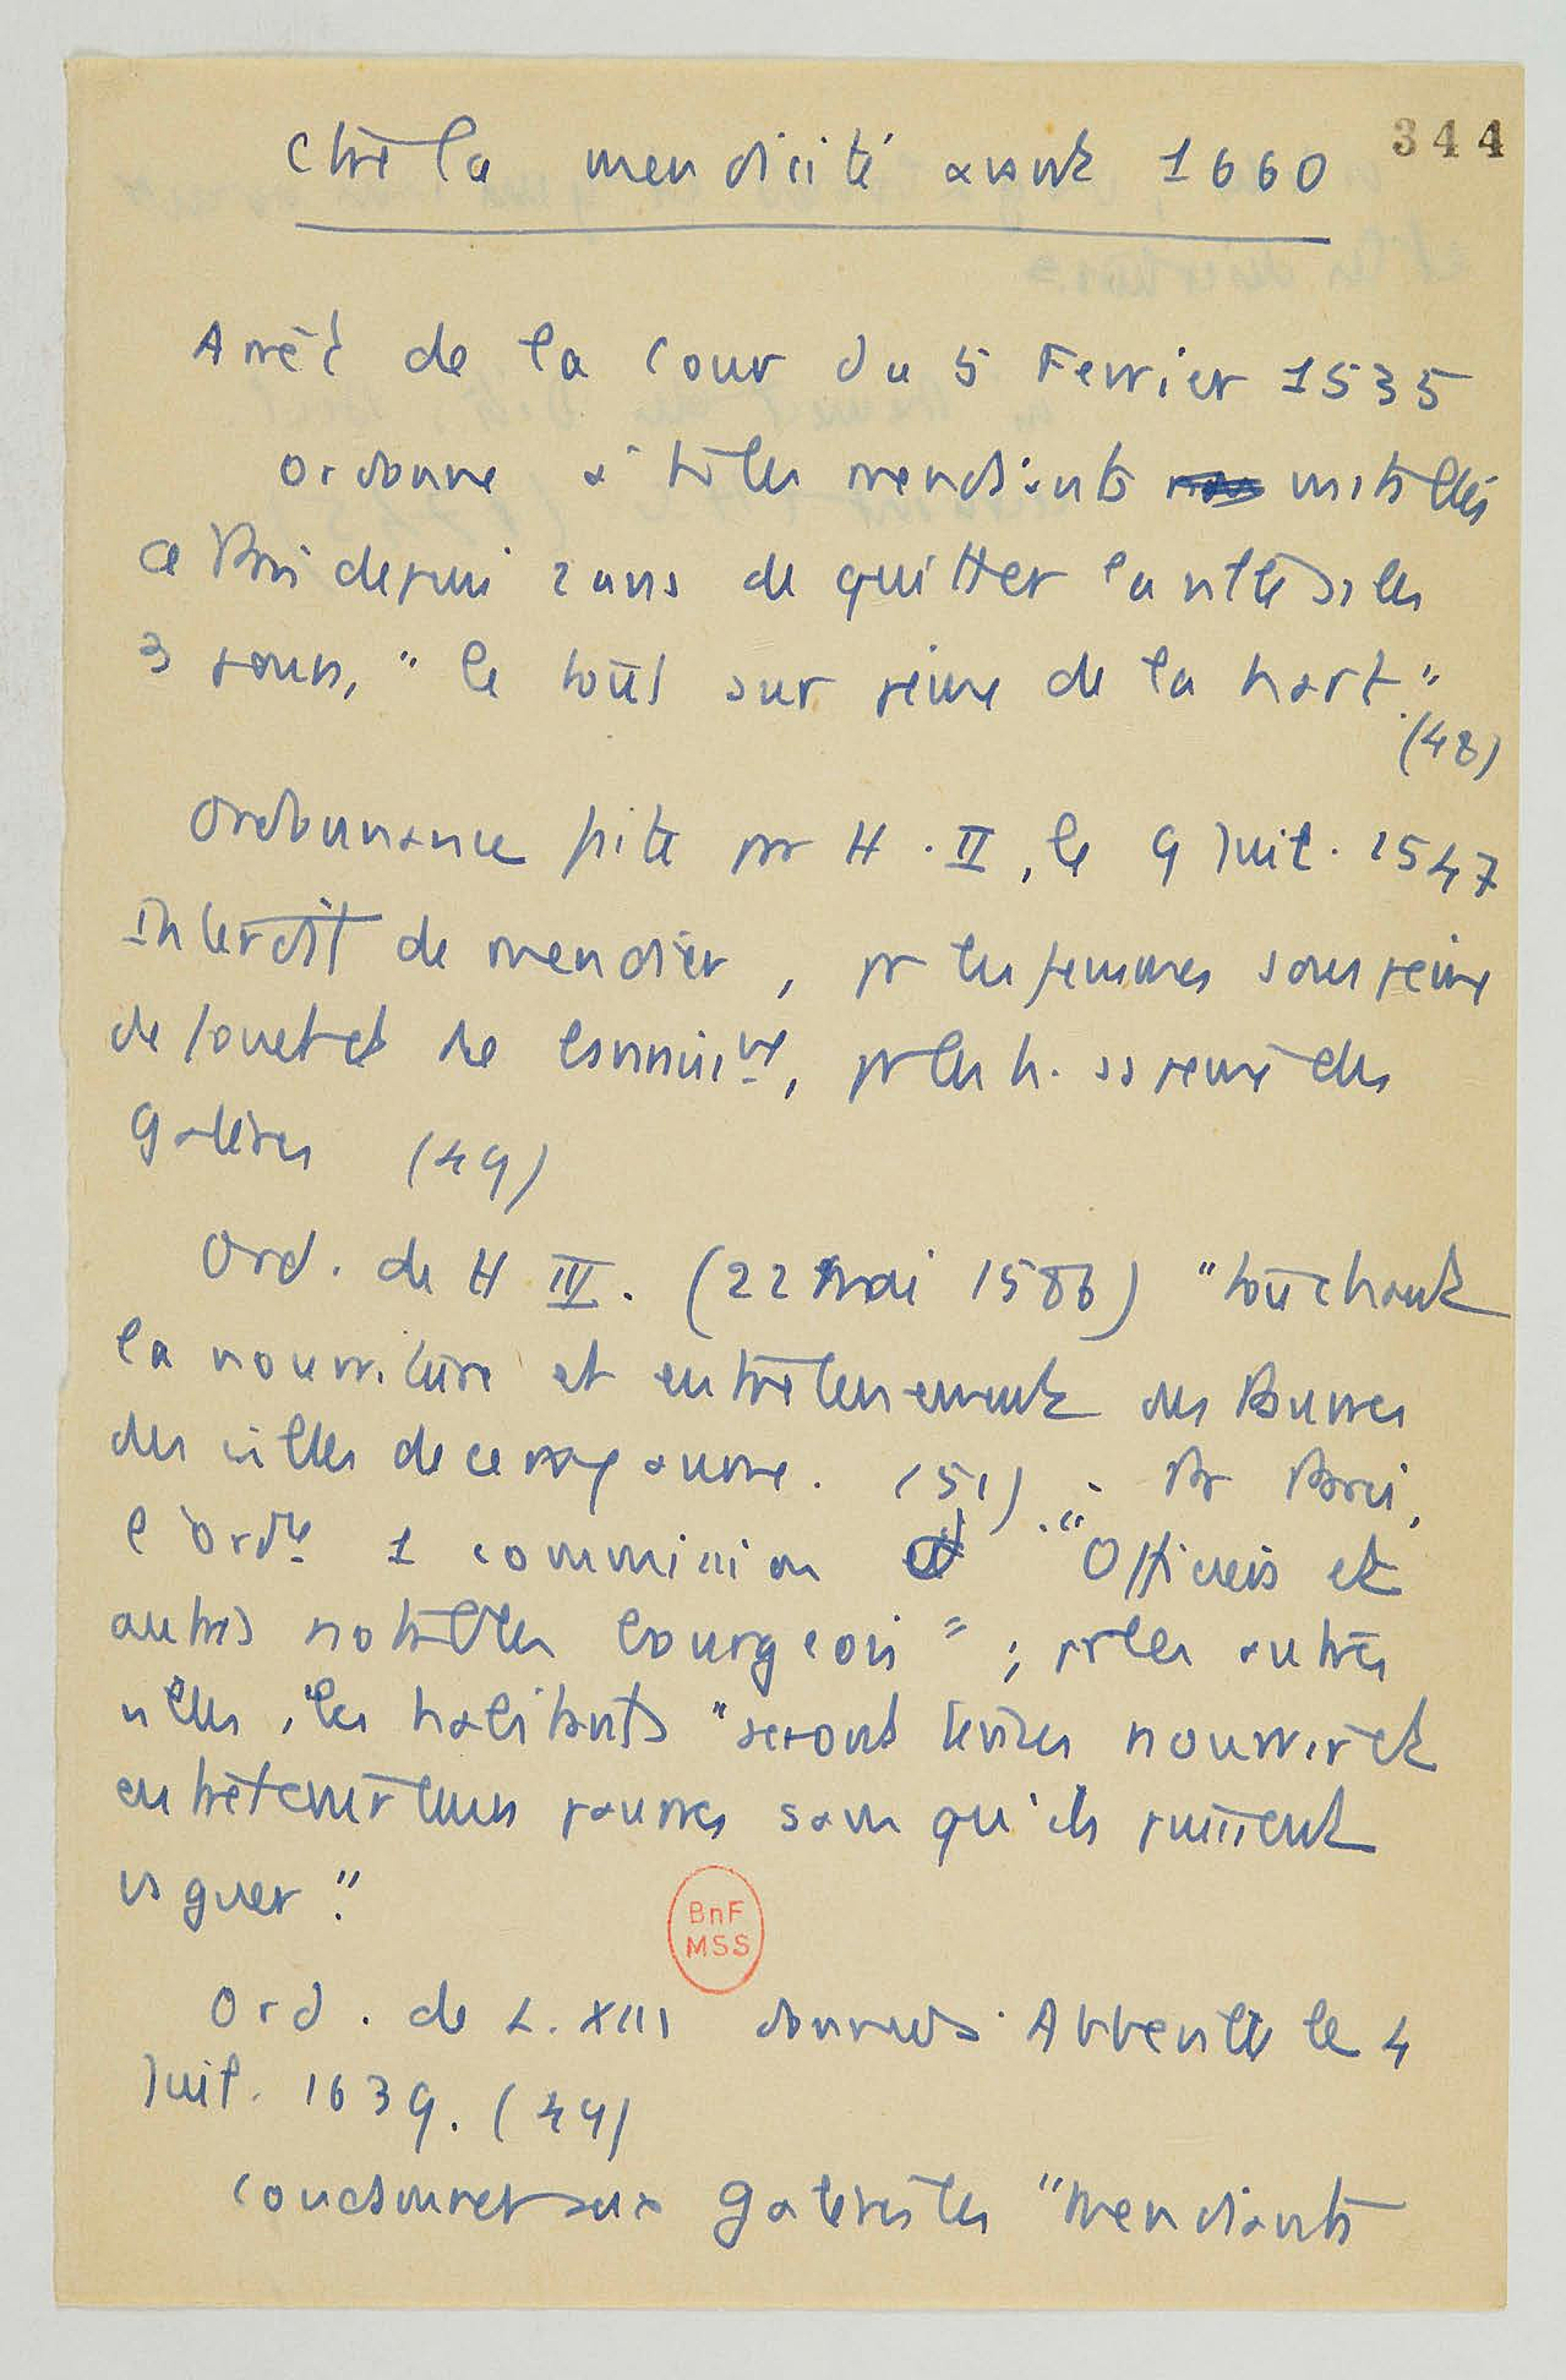 344
Ctre la mendicité avant 1660
Arrêt de la Cour du 5 Fevrier 1535
ordonne à ts les mendiants installés
à Paris depuis 2 ans de quitter la ville ds les
3 jours, "le tout sur peine de la hart."
(48)
Ordonnance faite par H. II, le 9 Juil. 1547
interdit de mendier, pr les femmes sous peine
de fouet et de , pr les h. ss peine des
galères (49)
Ord. de H IV. (22 Mai 1586) "touchant
la nourriture et entretenement des Pauvres
des villes de ce royaume. (51). " Pr Paris,
l'ordce 1 commission d' "Officiers et
autres notables bourgeois" ; pr les autres
villes, les habitants "seront tenus nourrir et
entretenir leurs pauvres sans qu'ils puissent
vaguer."
BnF
MSS
Ord. de L. XIII donnée à Abbeville le 4
Juil. 1639. (49)
condamner aux galères les "Mendiants